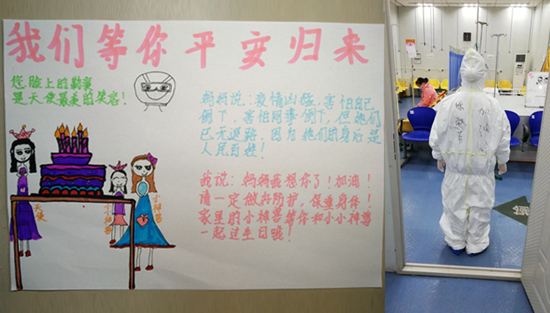 我们等你平安归来
您脸上的勒痕
是天使最美的笑容!
妈妈说:疫情凶猛,害怕自己
倒下,害怕同事倒下,但她们
已无退路,因为她们的身后是
人民百姓!
我说:妈妈我想你了!加油!
请一定做好防护,保重身体!
家里的小神兽等你和小小神兽
一起过生日哦!